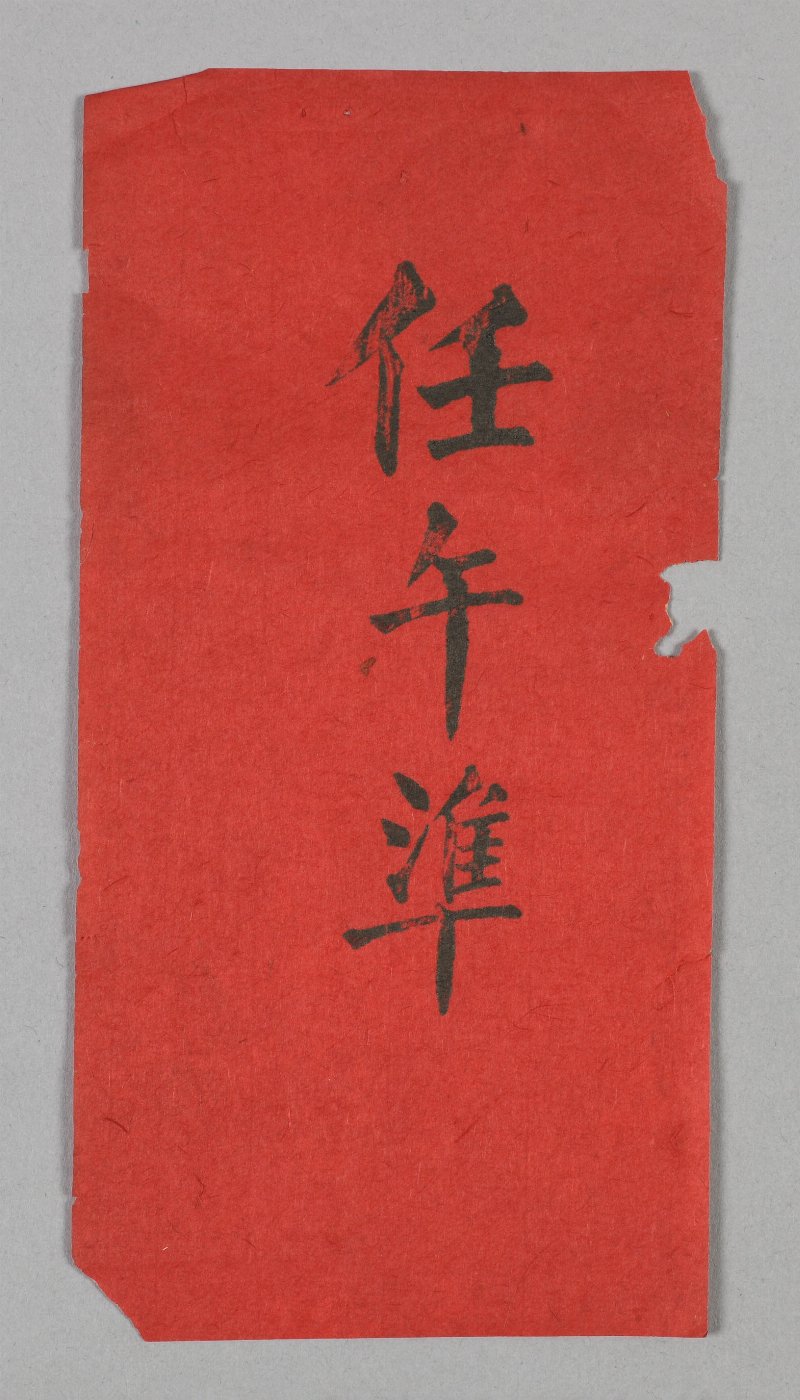 任午準